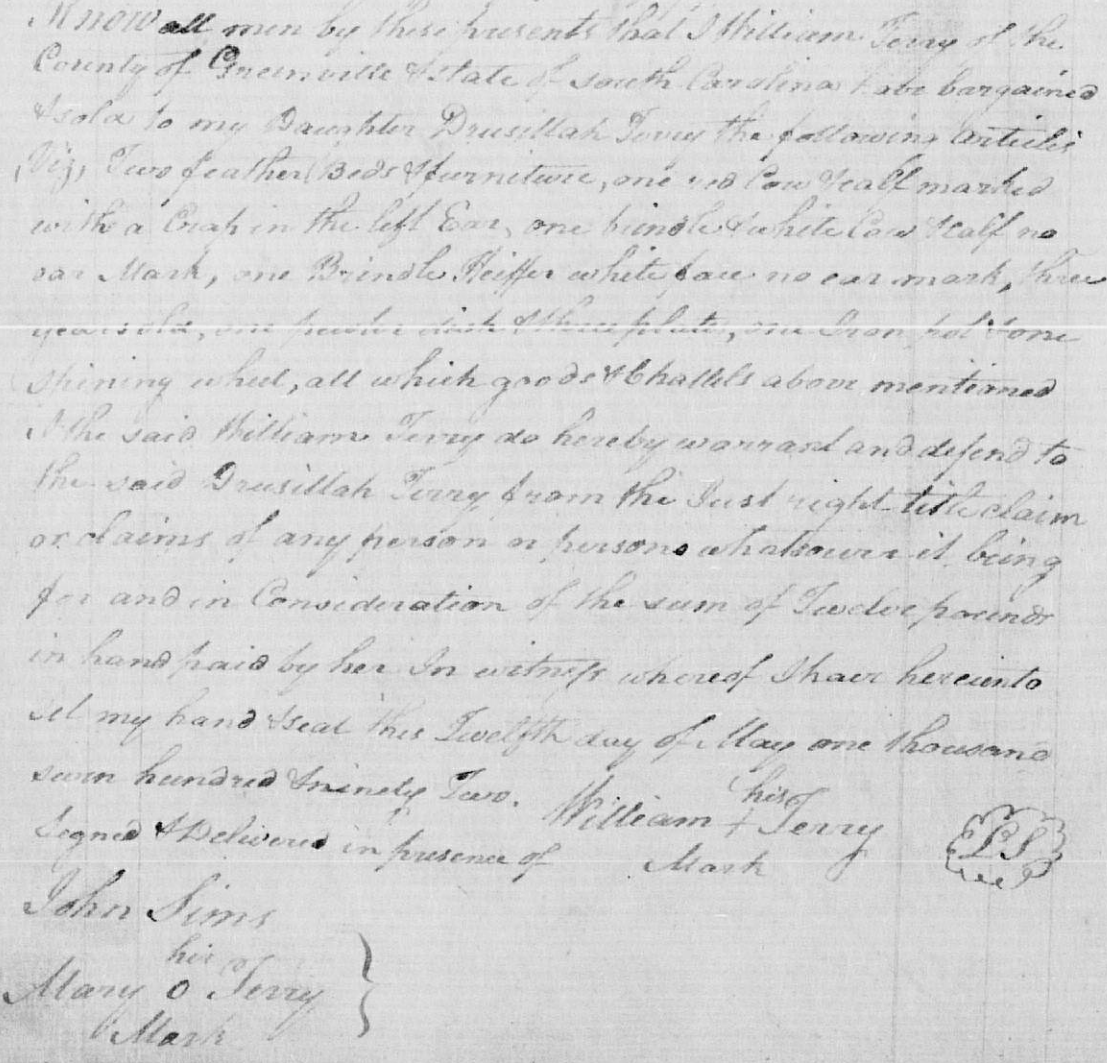 Know all men by these presents that I William Terry of the
County of Greenville & state of south Carolina have bargained
& sold to my Daughter Drusillah Terry the following articles
(Viz) Two feather Beds & furniture, one red Cow & calf marked
with a Crap in the left Ear, one brindle & white Cow & calf no
ear Mark, one Brindle Heiffer white face no ear mark, three
years old, one pewter dish & three plates, one Iron pot & one
spining wheel, all which goods & Chattels above mentioned
I the said William Terry do hereby warrant and defend to
the said Drusillah Terry from the Just right title claim
or claims of any person or persons whatsoever it being
for and in Consideration of the sum of Twelve pounds
in hand paid by her In witness whereof I have hereunto
set my hand & seal this Twelfth day of May one thousand
seven hundred & ninety Two.
his
William + Terry LS
Mark
Signed & Delivered in presence of
John Sims
her
Mary O Terry
Mark